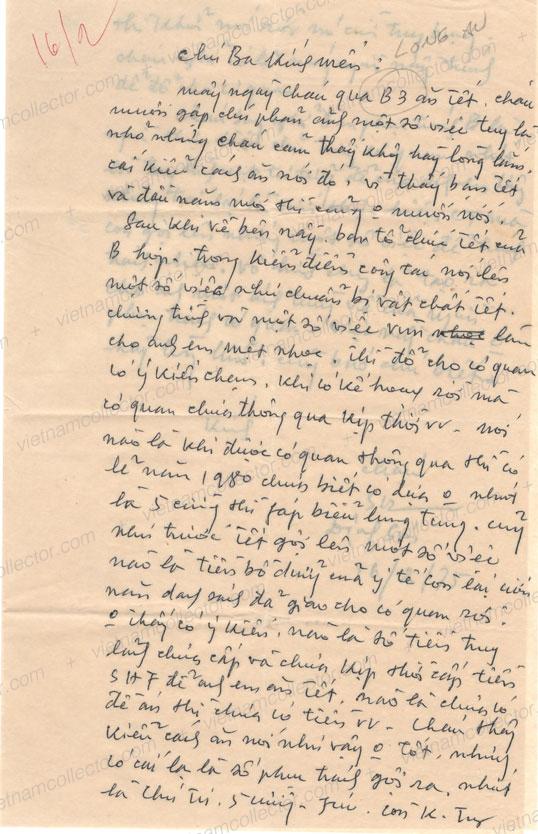 16/2
LONG AN
chú Ba kính mến.
mấy ngày cháu qua B3 ăn tết. cháu
muốn gặp chú phản ảnh một số việc tuy là
nhỏ nhưng cháu cảm thấy không hay lòng lắm,
cái kiểu cách ăn nói đó. vì thấy bận tết
và đầu năm mới thì cũng o muốn nói.
Sau khi về bên này. ban tổ chức tết của
B họp. trong kiểm điểm công tác nói lên
một số việc như chuẩn bị vật chất tết.
chúng túng và một số việc làm
cho anh em mệt nhọc thì đổ cho cơ quan
có ý kiến chậm. khi có kế hoạch rồi mà
cơ quan chưa thông qua kịp thời vv - nói
nào là khi được cơ quan thông qua thì có
lẽ năm 1980 chưa biết có đưa o nhứt
là 5 cũng thì gặp biểu lúng túng. cũng
như trước tết gởi lên một số việc
nào là tiền bồi dưỡng của y tế còn lại cuối
năm đang sang đã giao cho cơ quan rồi.
o thấy có ý kiến. nào là số tiền tuy
lãnh chưa cấp và chưa kịp thời cấp tiền
SHF để anh em ăn tết, nào là chưa có
đề án thì chưa có tiền vv - cháu thấy
kiểu cách ăn nói như vậy o tốt, nhưng
có cái lạ là số phụ trách gởi ra, nhứt
là Chú Tư. 5 cũng. còn K. Tuy